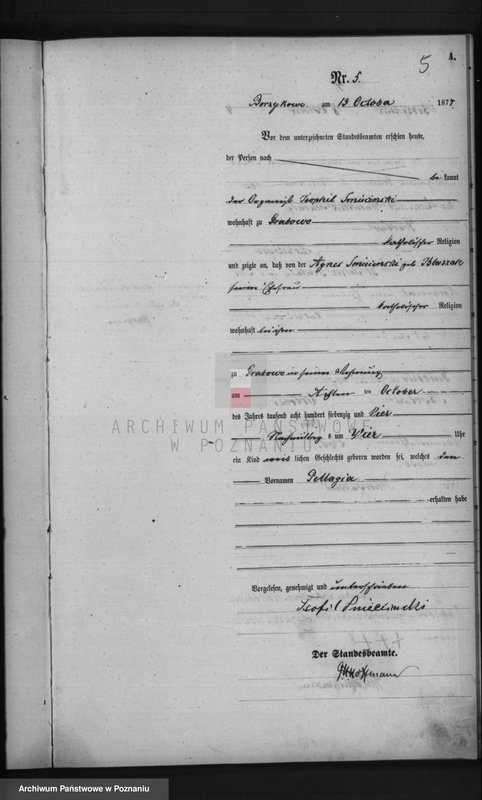 5
A.
Nr. 5.
Borzykowo am 13 October 1874.
Vor dem unterzeichneten Standesbeamten erschien heute,
der Person nach
be kannt
der Organist Teophil
wohnhaft zu Grabowo
katholischer Religion
und zeigte an, daß von der Agnes geb
seiner Ehefrau
katholischer Religion
wohnhaft bei ihm
zu Grabowo in seiner Wohnung
am Achten ten October
des Jahres tausend acht hundert siebenzig und Vier
Nachmittag s um Vier Uhr
ein Kind weib lichen Geschlechts geboren worden sei, welches den
Vornamen Pellagia
erhalten habe
Vorgelesen, genehmigt und unterschrieben
Teofil
Der Standesbeamte.
ARCHIWUM PAŃSTWOWE
W POZNANIU
Archiwum Państwowe w Poznaniu